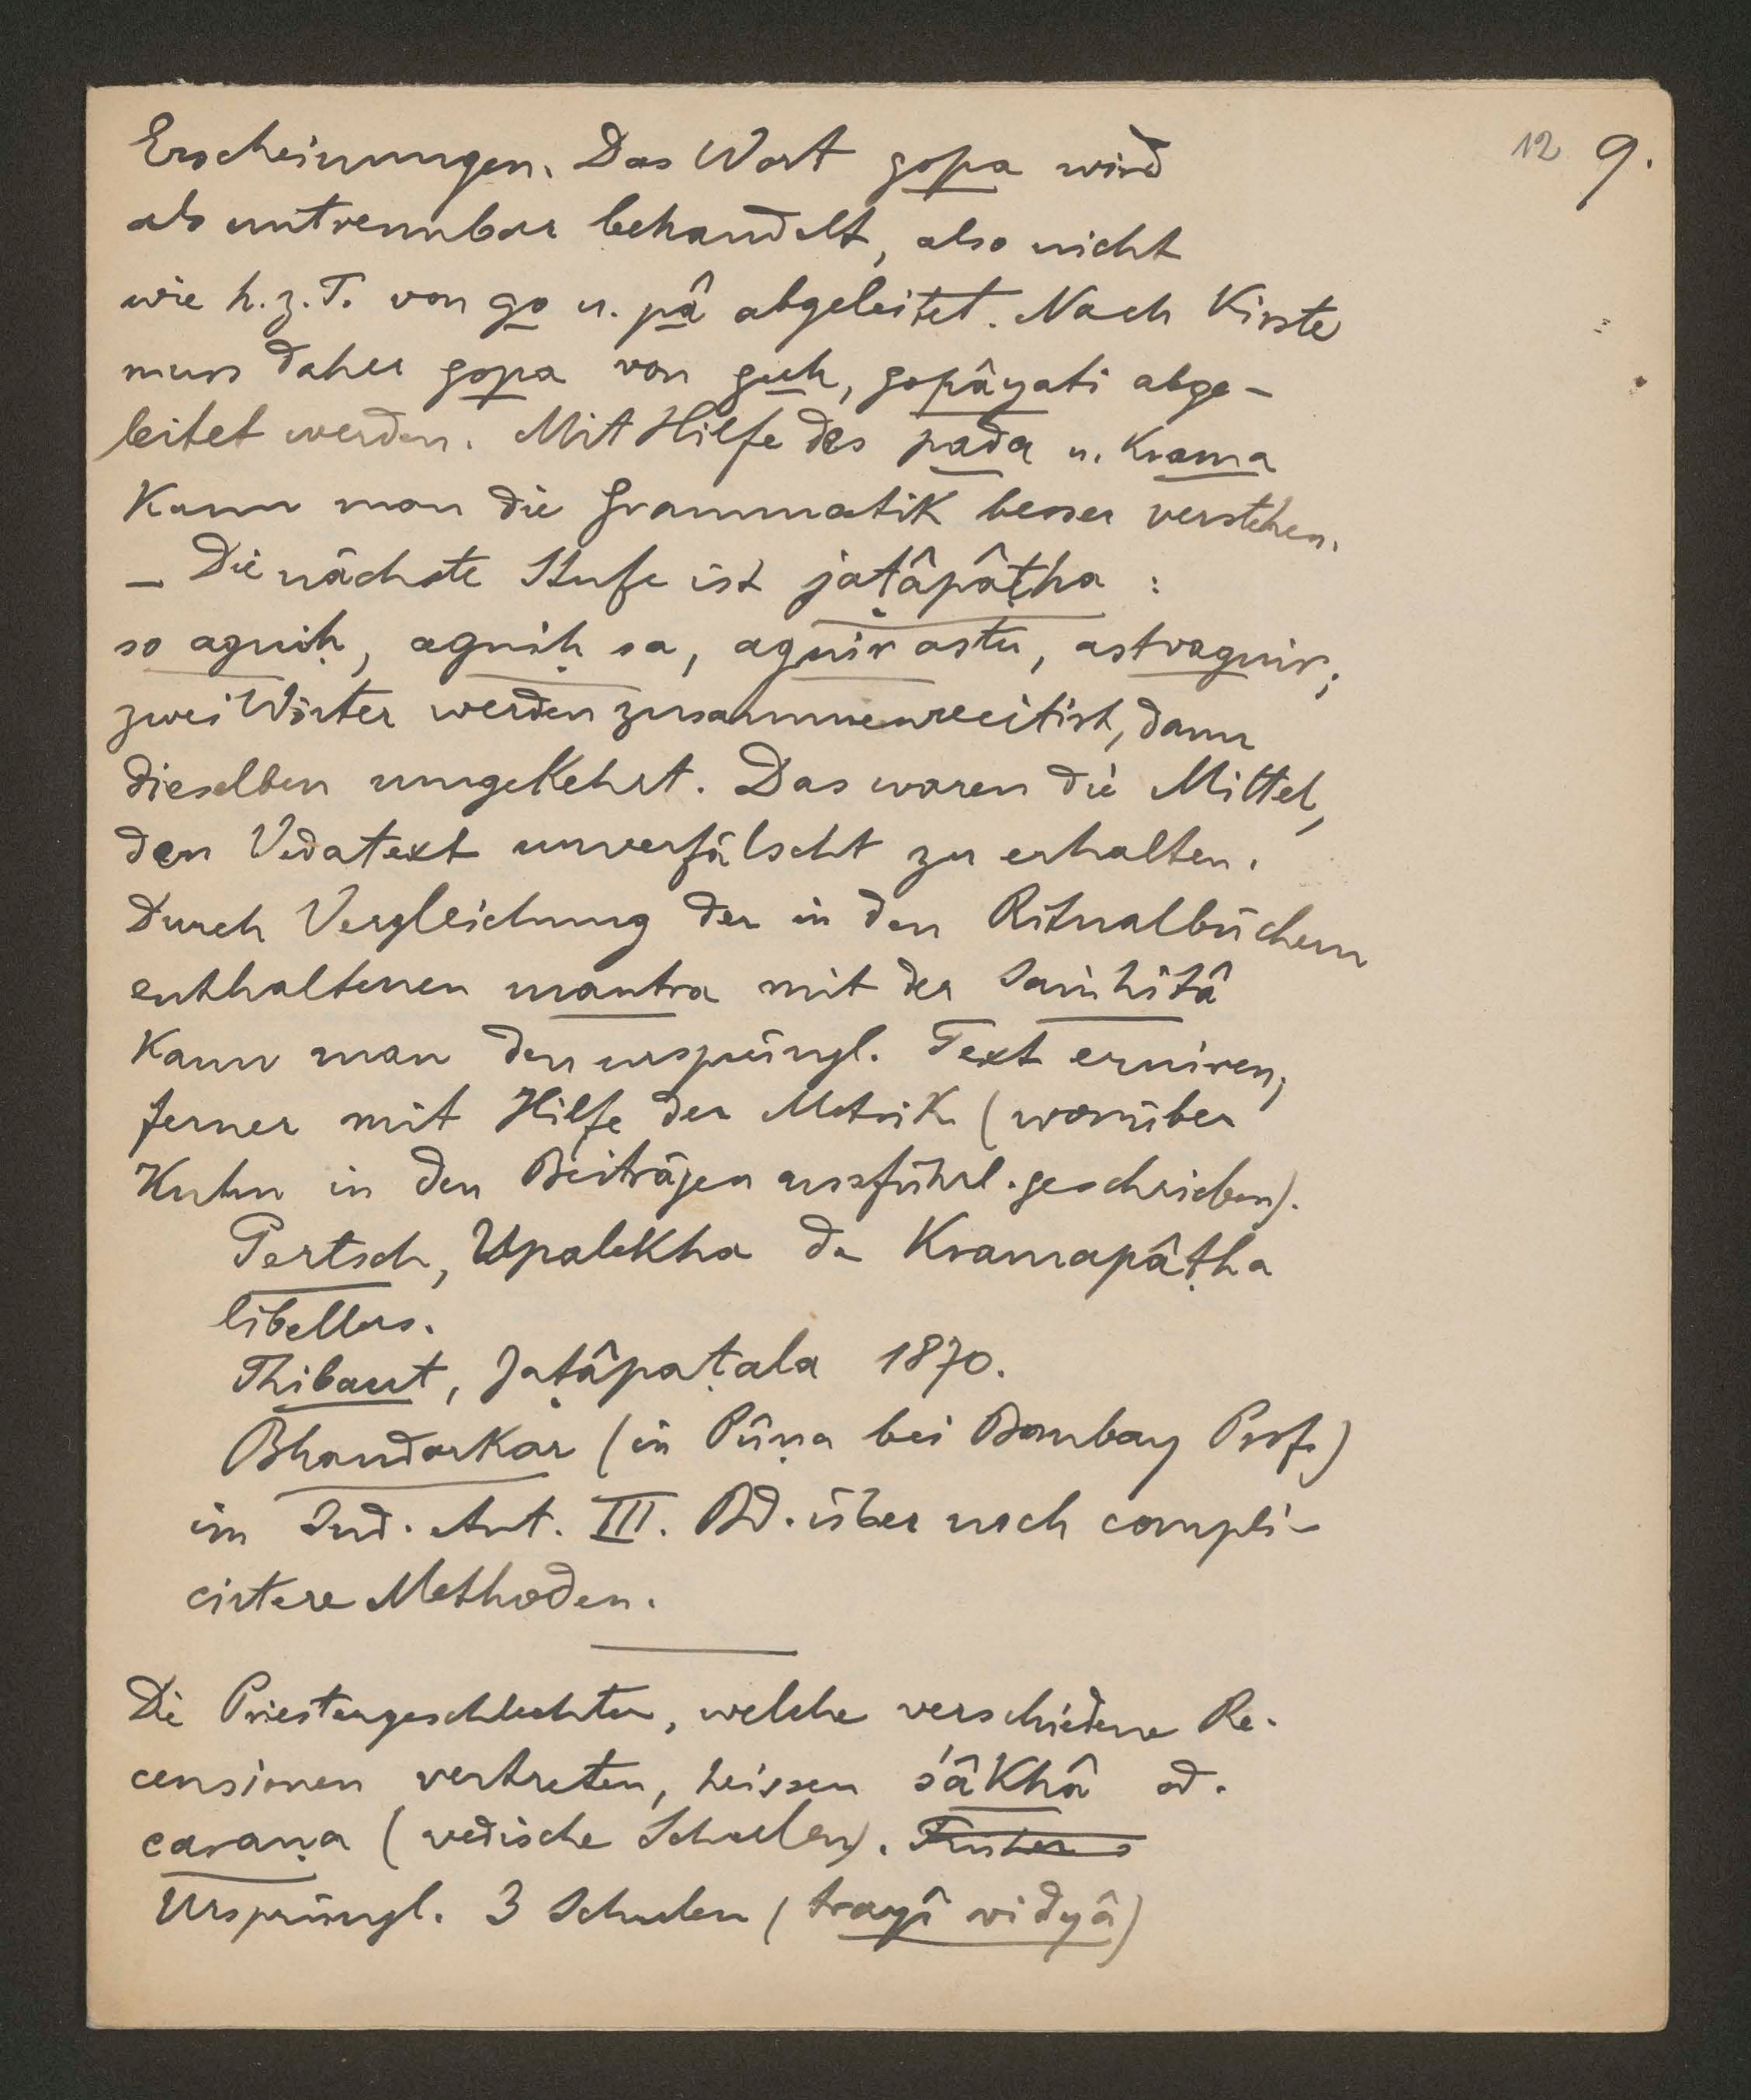 12 9.
Erscheinungen. Das Wort gopa wird
als untrennbar behandelt, also nicht
wie h.z.T. von go u. pâ abgeleitet. Nach Kirste
muss daher gopa von guh, gopâyati abge-
leitet werden. Mit Hilfe des pada u. Krama
Kann man die Grammatik besser verstehen.
– Die nächste Stufe ist jaṭâpâṭha :
so agniḥ, agniḥ sa, agnir astu, astvagnir;
zwei Wörter werden zusammenrecitirt, dann
dieselben umgekehrt. Das waren die Mittel,
den Vedatext unverfälscht zu erhalten.
Durch Vergleichung der in den Ritualbüchern
enthaltenen mantra mit der Saṁhitâ
Kann man den ursprüngl. Text eruiren,
ferner mit Hilfe der Metrik (worüber
Kuhn in den Beiträgen ausführl. geschrieben).
Pertsch, Upalekha de Kramapâṭha
libellus.
Thibaut, Jaṭâpaṭala 1870.
Bhandarkar (in Pûṇa bei Bombay Prof.)
im Ind. Ant. III. Bd. über noch compli-
cirtere Methoden.
Die Priestergeschlechter, welche verschiedene Re-
censionen vertreten, heissen śâkhâ od.
caraṇa (vedische Schulen). Früher s
Ursprüngl. 3 Schulen (trayî vidyâ)